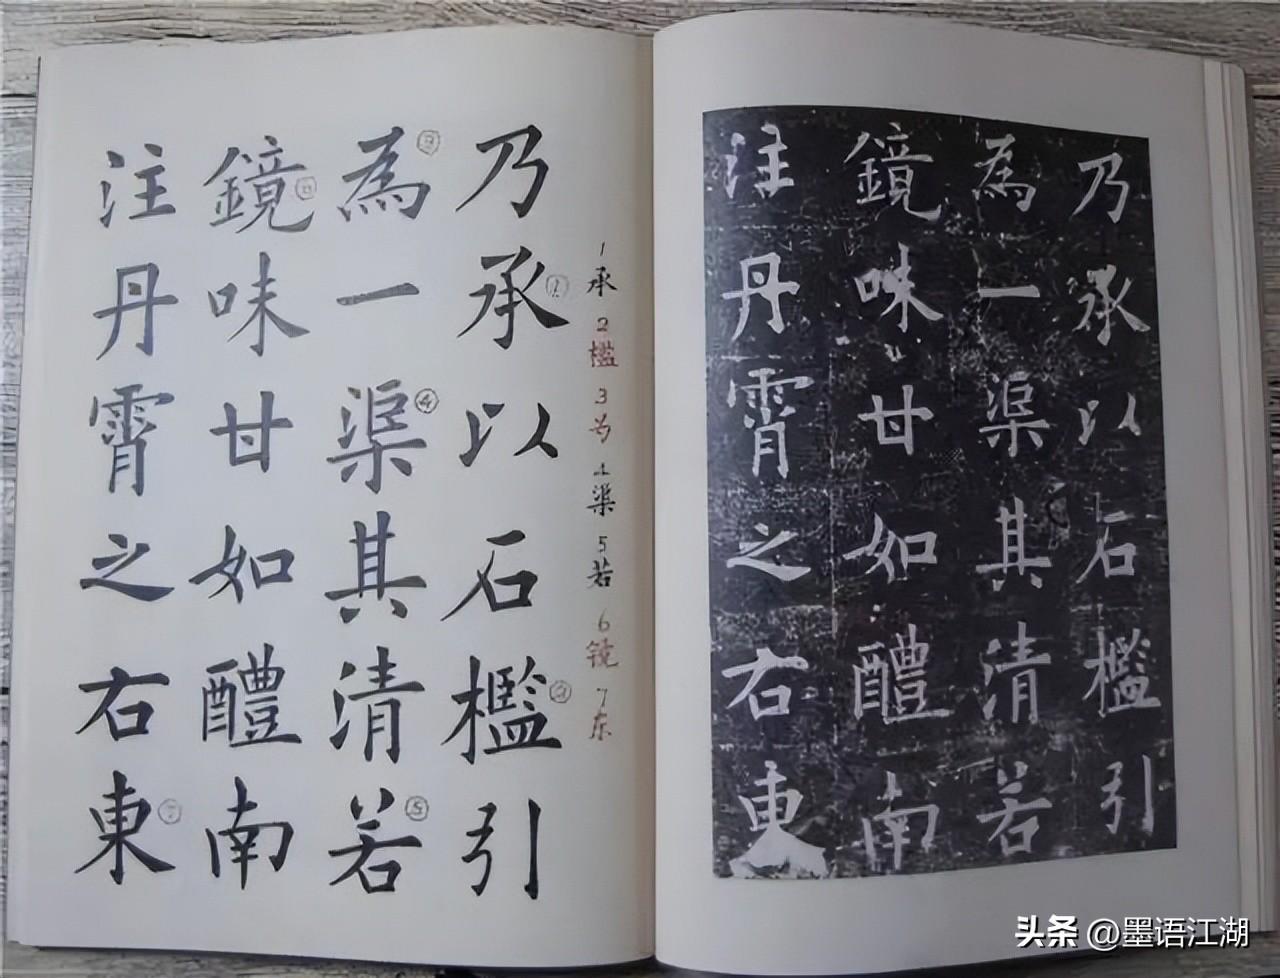 1承2槛3为4渠5若6镜7东
乃承①以石檻②引
為③一渠④其清若⑤
鏡味甘如醴南
注丹霄之右東⑦
乃承以石檻引
為一渠其清若
鏡味甘如醴南
注丹霄之右東
头条 @墨语江湖